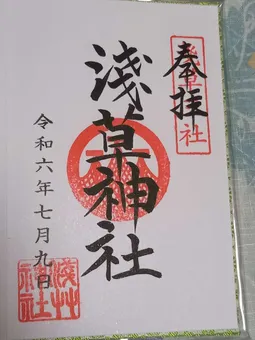 奉拝
浅草神社
令和六年七月九日
浅草神社